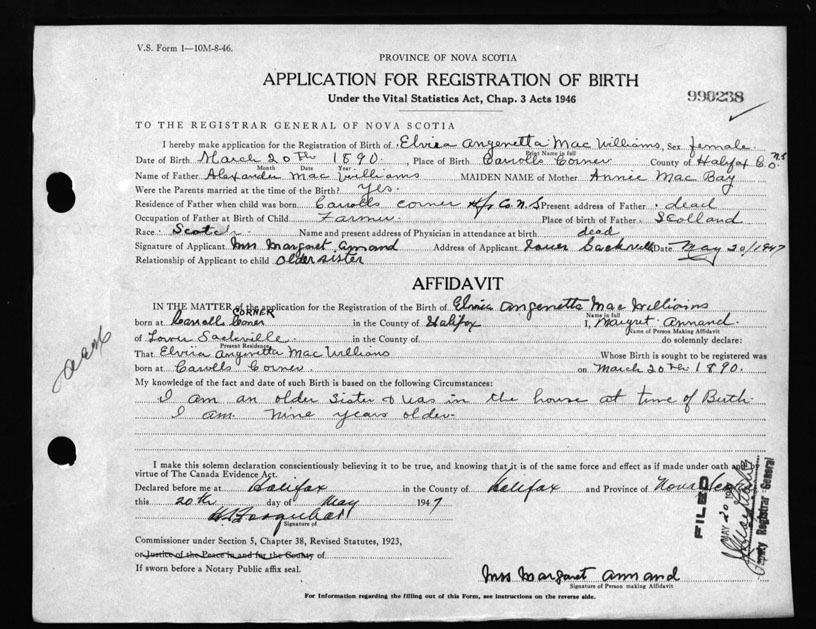 V.S. Form 1—10M-8-46.
PROVINCE OF NOVA SCOTIA
APPLICATION FOR REGISTRATION OF BIRTH
990238
Under the Vital Statistics Act, Chap. 3 Acts 1946
TO THE REGISTRAR GENERAL OF NOVA SCOTIA
I hereby make application for the Registration of Birth of Elvira Angenetta Mac Williams, Sex female
Print Name in full
Date of Birth March 20th 1890, Place of Birth Carrolls Corner County of Halifax Co. N.S
Month Date Year
Name of Father Alexander Mac Williams MAIDEN NAME of Mother Annie Mac Bay
Were the Parents married at the time of the Birth? Yes.
Residence of Father when child was born Carrolls corner Hfx Co. N.S Present address of Father dead
Occupation of Father at Birth of Child Farmer Place of birth of Father Scotland
Race Scotch Name and present address of Physician in attendance at birth dead
Signature of Applicant Mrs Margaret Annand Address of Applicant Lower Sackville Date May 20/1947
Relationship of Applicant to child older sister
AFFIDAVIT
IN THE MATTER of the application for the Registration of the Birth of Elvira Angenetta Mac Williams
Name in full
CORNER
born at Carrolls Corner in the County of Halifax I, Margret Annand
Name of Person Making Affidavit
of Lower Sackville in the County of do solemnly declare:
Present Residence
That Elvira Angenetta Mac Williams Whose Birth is sought to be registered was
born at Carrolls Corner. on March 20th 1890.
My knowledge of the fact and date of such Birth is based on the following Circumstances:
I am an older Sister & was in the house at time of Birth.
I am nine years older.
I make this solemn declaration conscientiously believing it to be true, and knowing that it is of the same force and effect as if made under oath and by
virtue of The Canada Evidence Act.
Declared before me at Halifax in the County of Halifax and Province of Nova Scotia
this 20th day of May 1947
Signature of
Commissioner under Section 5, Chapter 38, Revised Statutes, 1923,
or Justice of the Peace in and for the County of
If sworn before a Notary Public affix seal.
Mrs Margaret Annand
Signature of Person making Affidavit
For Information regarding the filling out of this Form, see instructions on the reverse side.
FILED
MAY 20
Deputy Registrar General